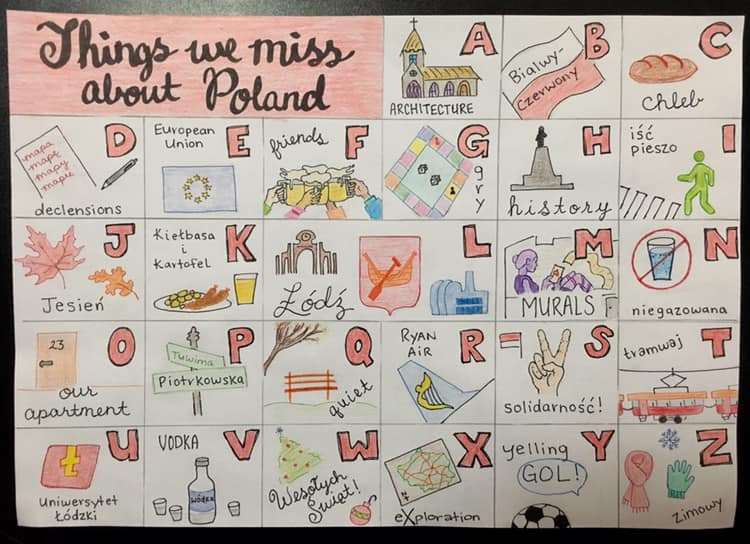 Things we miss
about Poland
A
ARCHITECTURE
B
Bialwy-
Czerwony
C
chleb
D
mapa
mapę
mapy
mapie
declensions
E
European
Union
F
friends
G
gry
H
history
I
iść
pieszo
J
Jesień
K
Kiełbasa
i
Kartofel
L
Łódź
M
MURALS
N
niegazowana
O
23
our
apartment
P
Tuwima
Piotrkowska
Q
quiet
R
RYAN
AIR
S
solidarność!
T
tramwaj
U
Ł
Uniwersytet
Łódzki
V
VODKA
WÓDKA
W
Wesołych
Świąt!
X
N
eXploration
Y
yelling
GOL!
Z
zimowy